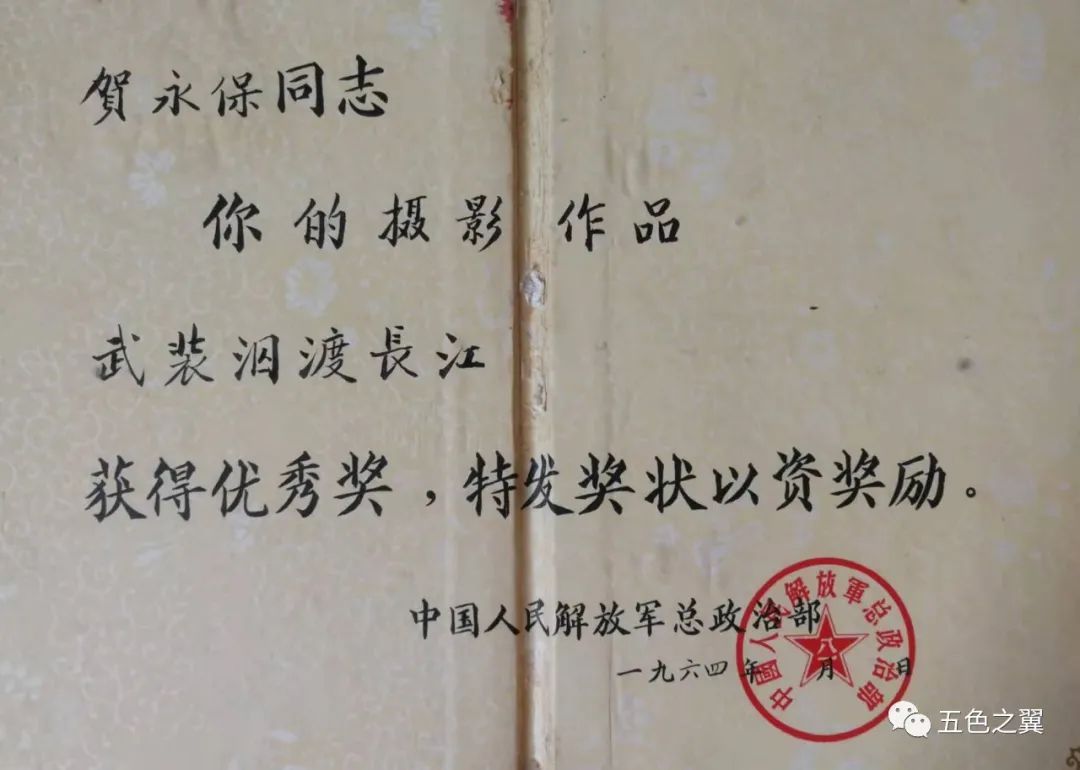 賀永保同志
你的摄影作品
武装泅渡長江
获得优秀奖，特发奖状以资奖励。
中国人民解放军总政治部
一九六四年 月 日
中國人民解放軍总政治部
八一
五色之翼